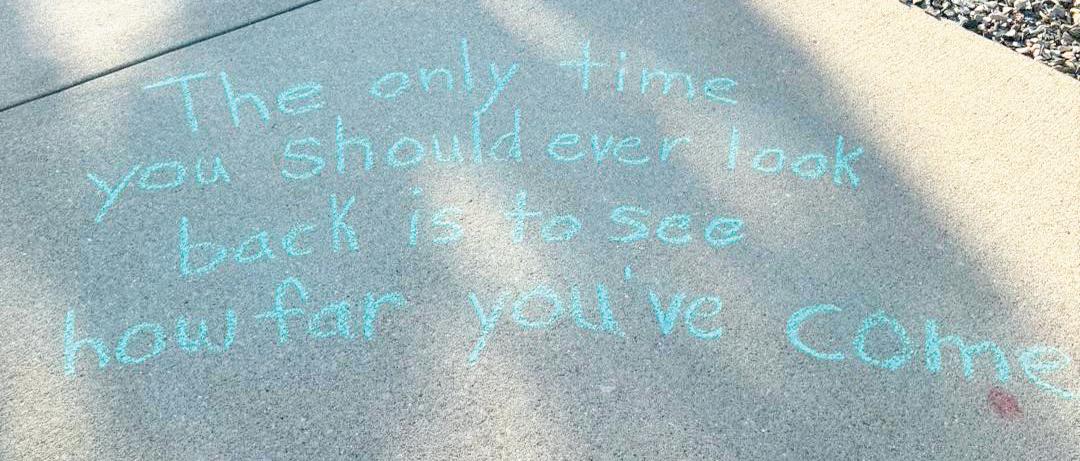 The only time
you should ever look
back is to see
how far you've come